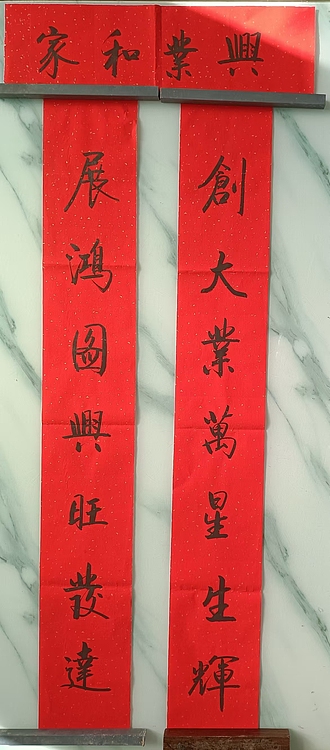 家和業興
創大業萬星生輝
展鴻圖興旺發達